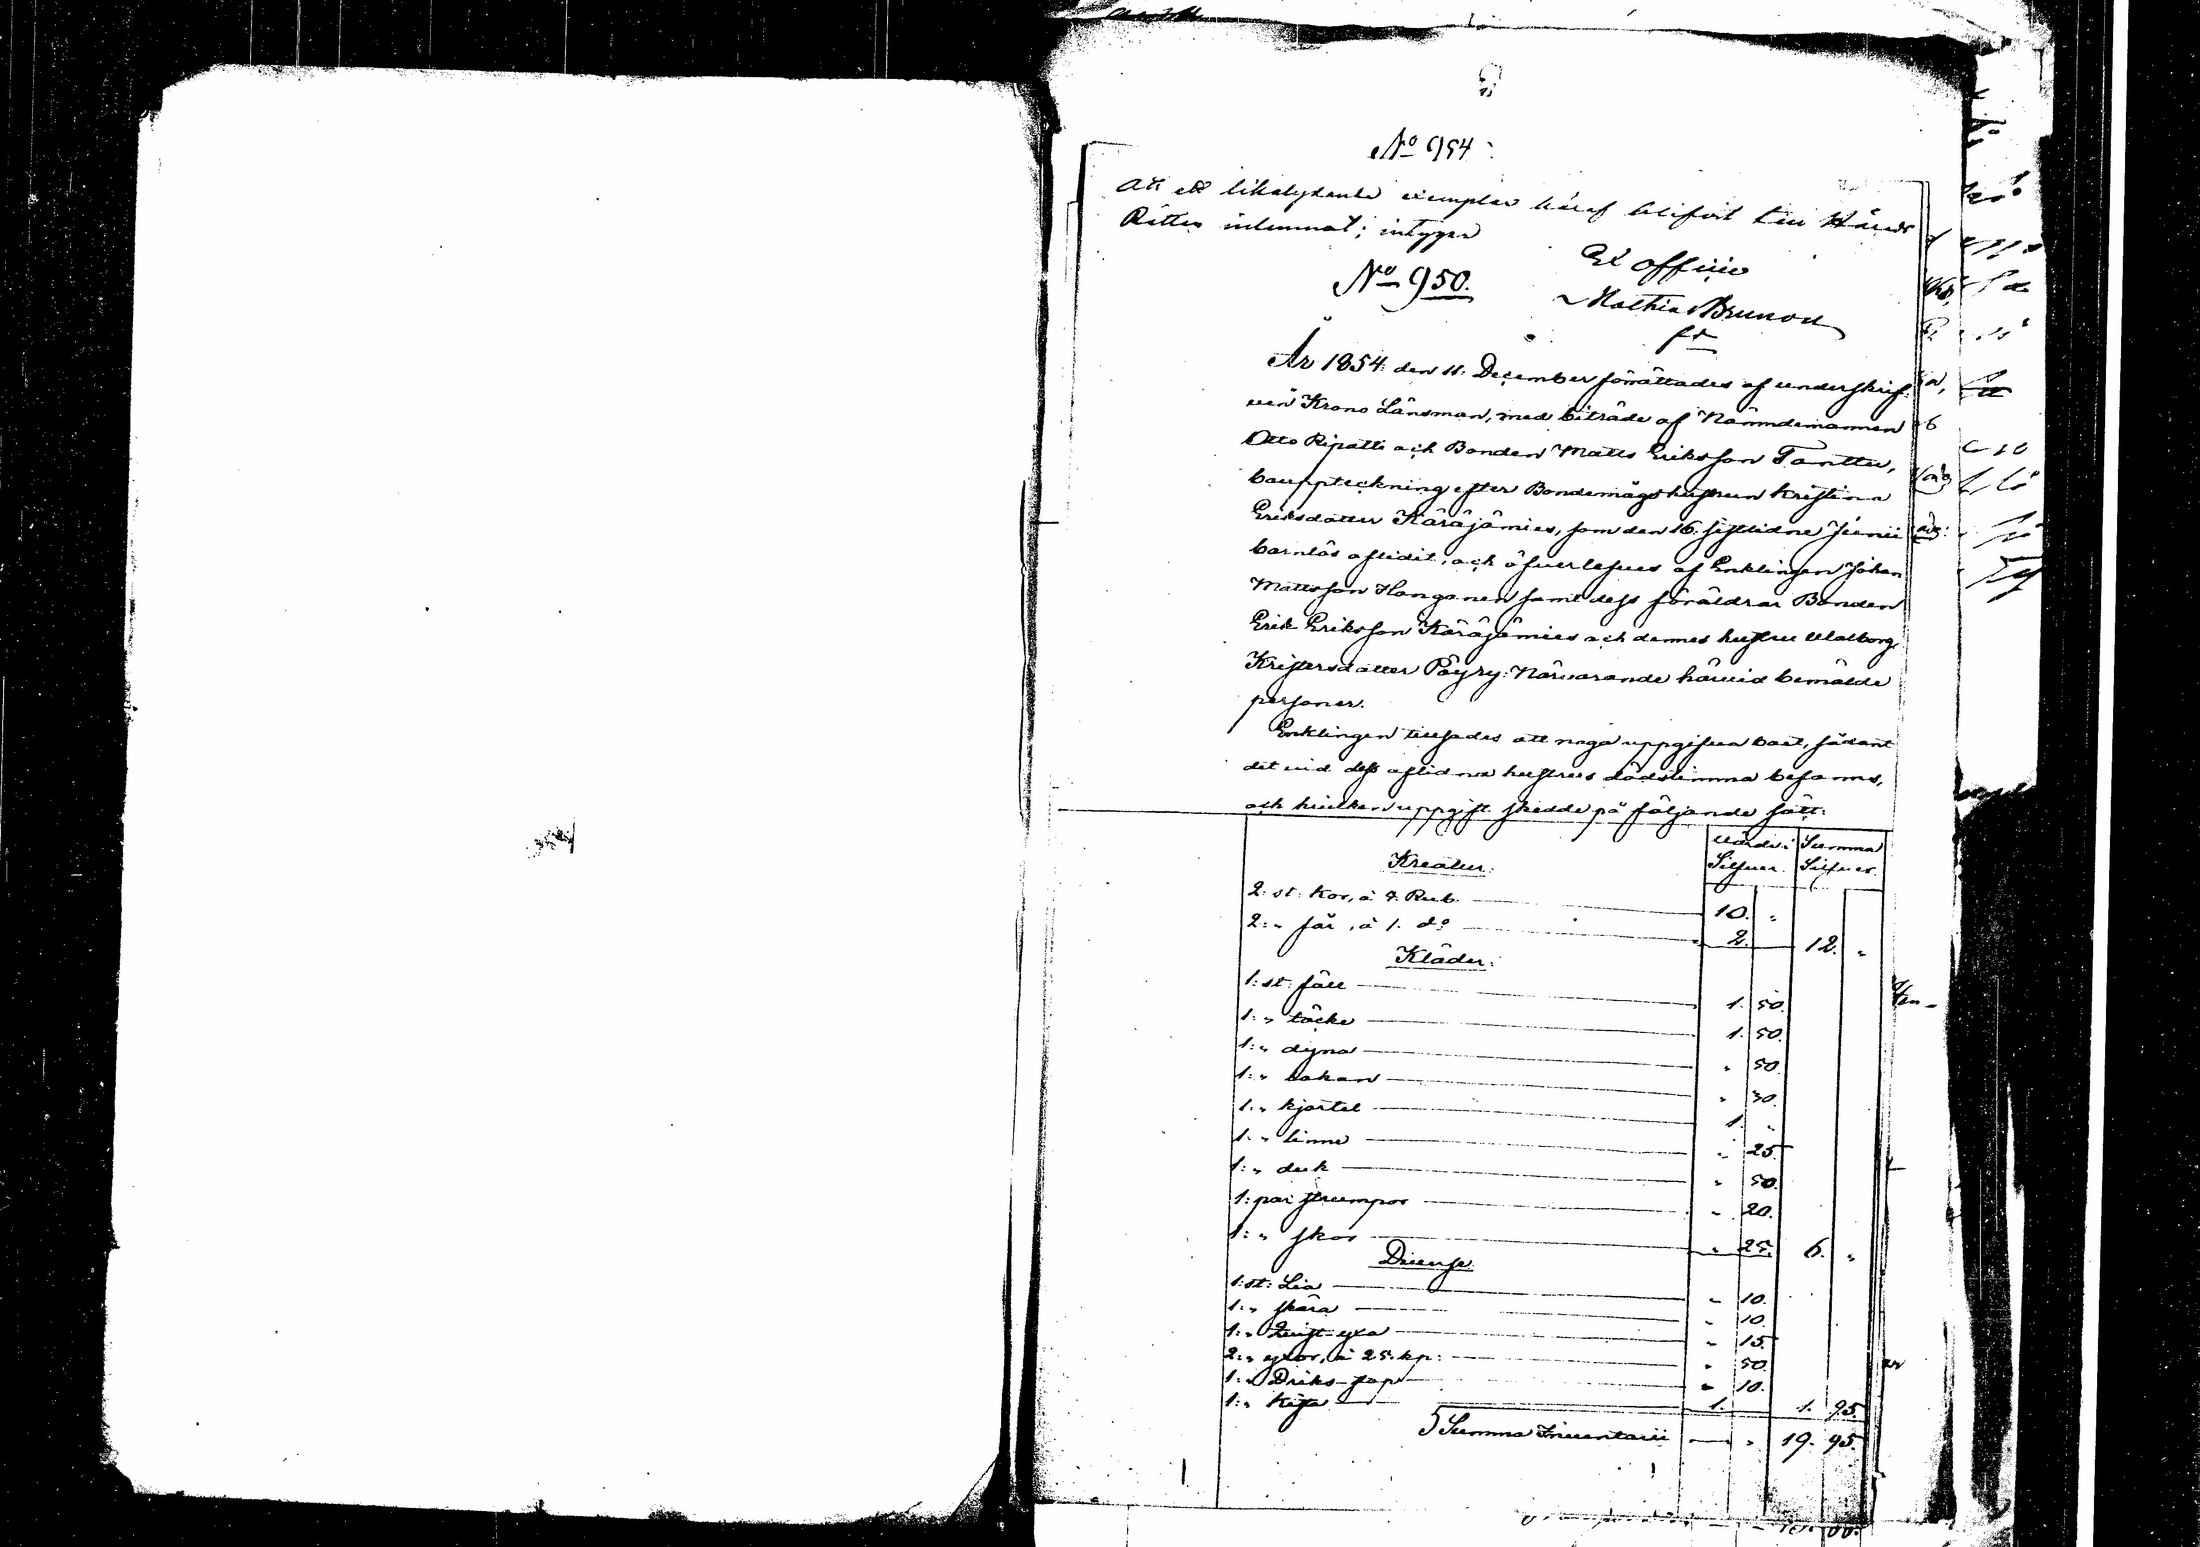 No 954
Att ett likalydande exemplar häraf blifvit till Härads
Rätten inlemnat; intygar
Ex officio
No 950.
Mathias Brunou
År 1854. den 11. December förrättades af underskrif-
ven Krono Länsman, med biträde af Nämndemannen
Otto Ripatti och Bonden Matts Eriksson Tanttu,
bouppteckning efter Bondemågshustrun Kristina
Eriksdotter Käräjämies, som den 16. sistlidne Junii
barnlös aflidit, och öfverlefves af Enklingen Johan
Mattsson Hanganen samt dess föräldrar Bonden
Erik Eriksson Käräjämies och dennes hustru Walborg
Kristersdotter Pöyry. Närvarande härvid bemälde
personer.
Enklingen tillsades att noga uppgifva boet, sådant
det vid dess aflidna hustrus dödstimma befanns,
och hvilken uppgift skedde på följande sätt:
Värde i Silfver. Summa Silfver.
Kreatur.
2: st: Kor, à Rub. 10. "
2: " får, à 1. do 2. 12. "
Kläder:
1: st: fäll 1. 50.
1: " täcke 1. 50.
1: " dyna " 50.
1: " lakan " 30.
1: " kjortel 1. "
1: " linne " 25
1: " duk " 50.
1: par strumpor " 20.
1: " skor " 25. 6. "
Diverse.
1: st: Lia " 10.
1: " skära " 10.
1: " yxa " 15
2: " yxor, à 25. kp: " 50.
1: " Driks-stop " 10.
1: " Kista 1. 1. 95.
Summa Inventarii " 19. 95.